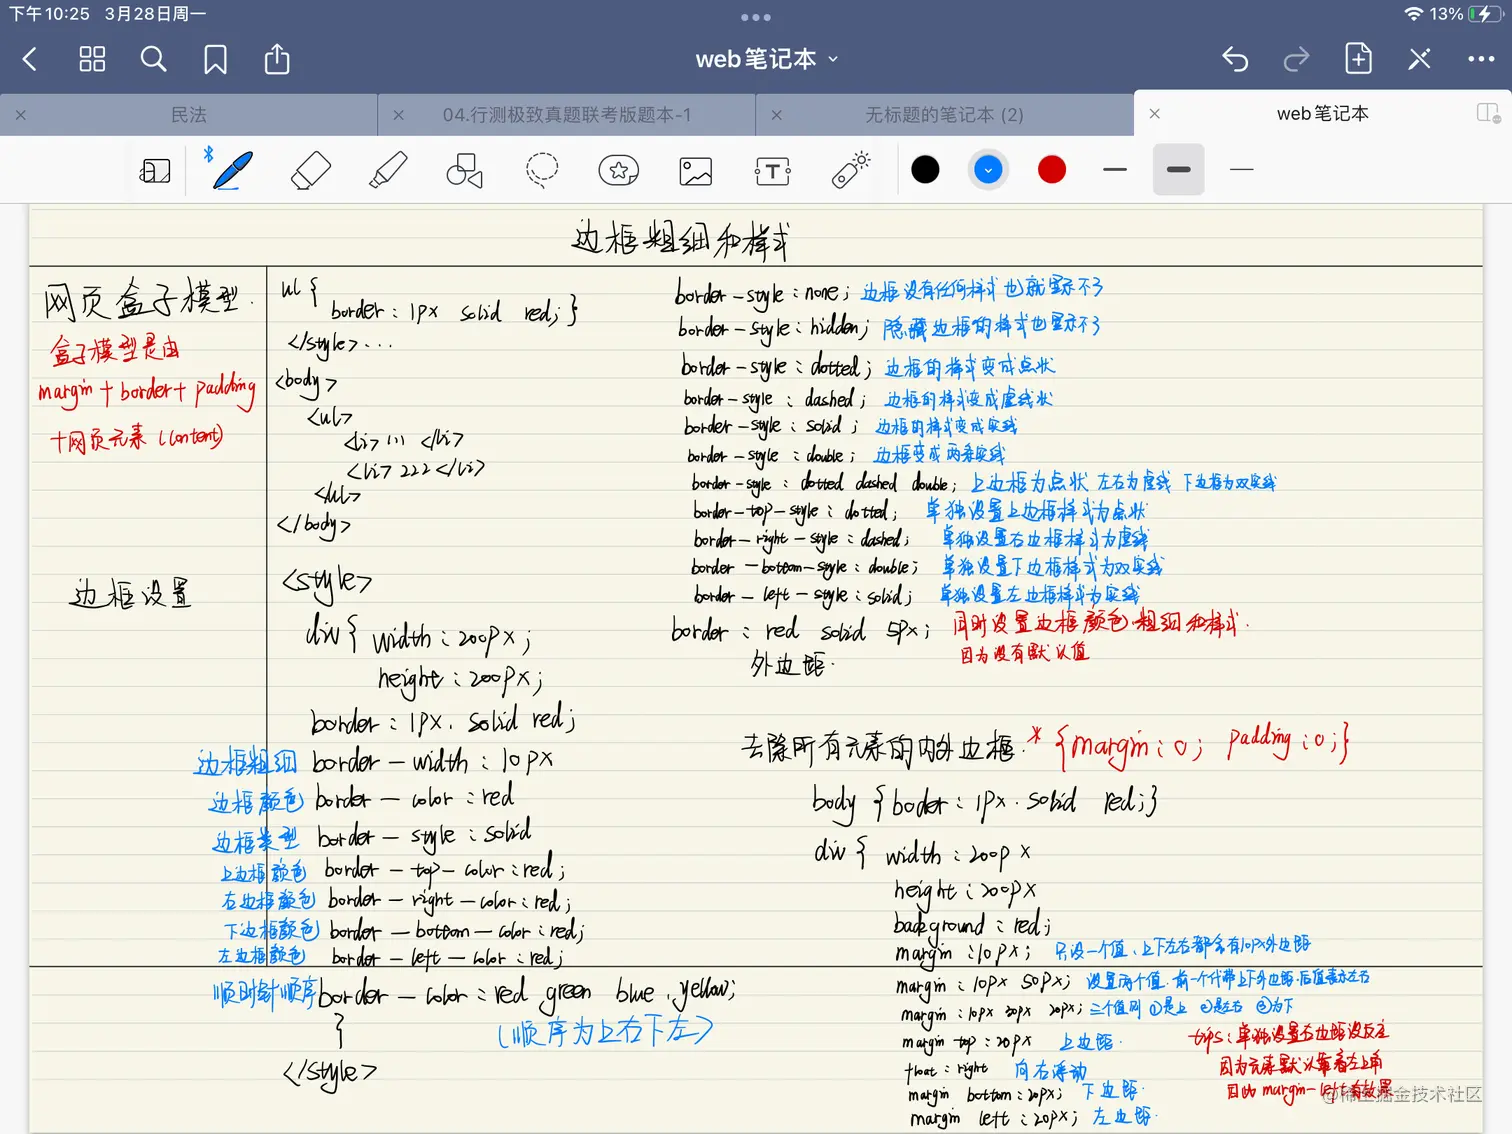 下午10:25 3月28日周一
13%
web笔记本
民法
04.行测极致真题联考版题本-1
无标题的笔记本 (2)
web笔记本
边框粗细和样式
网页盒子模型.
盒子模型是由
margin+border+padding
+网页元素(content)
边框设置
ul {
border: 1px solid red;}
</style>...
<body>
<ul>
<li> 111 </li>
<li> 222 </li>
</ul>
</body>
<style>
div{ width: 200px;
height: 200px;
border: 1px. solid red;
边框粗细 border-width: 10px
边框颜色 border-color: red
边框类型 border-style: solid
上边框颜色 border-top-color: red;
右边框颜色 border-right-color: red;
下边框颜色 border-bottom-color: red;
左边框颜色 border-left-color: red;
顺时针顺序 border-color: red green blue yellow;
}
(顺序为上右下左)
</style>
border-style: none; 边框没有任何样式也就显示不了
border-style: hidden; 隐藏边框的样式也显示不了
border-style: dotted; 边框的样式变成点状
border-style: dashed; 边框的样式变成虚线状
border-style: solid; 边框的样式变成实线
border-style: double; 边框变成两条实线
border-style: dotted dashed double; 上边框为点状 左右为虚线 下边框为双实线
border-top-style: dotted; 单独设置上边框样式为点状
border-right-style: dashed; 单独设置右边框样式为虚线
border-bottom-style: double; 单独设置下边框样式为双实线
border-left-style: solid; 单独设置左边框样式为实线
border: red solid 5px; 同时设置边框颜色.粗细和样式.
因为没有默认值
外边距.
去除所有元素的内外边框. *{margin:0; padding:0;}
body {boder: 1px. solid red;}
div { width: 200px
height: 200px
background: red;
margin: 10px; 只设一个值,上下左右都会有10px外边距
margin: 10px 50px; 设置两个值.前一个代带上下外边距.后值表示左右
margin: 10px 30px 20px; 三个值则 ①是上 ②是左右 ③为下
margin top: 20px 上边距.
float: right 向右浮动
margin bottom: 20px; 下边距.
margin left: 20px; 左边距.
tips: 单独设置右边距没反应
因为元素默认靠着左上角
因此 margin-left有效果
@稀土掘金技术社区